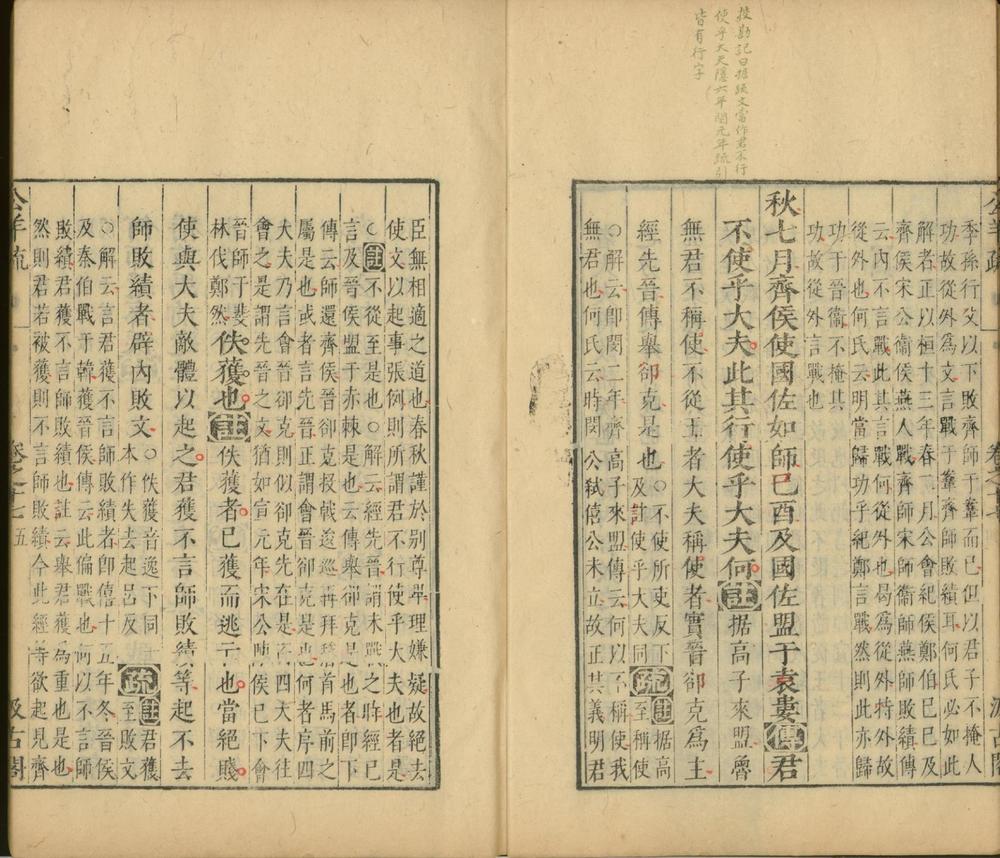 按勘記曰據疏文當作君不行
使乎大夫隱六年閔元年疏引
皆有行字
公羊疏
卷之十七
汲古閣
季孫行父以下敗齊師于鞌而已但以君子不掩人
功故從外內文言戰于鞌齊師敗績耳何氏必如此
解者正以桓十三年春二月公會紀侯鄭伯巳巳及
齊侯宋公衞侯燕人戰齊師宋師衞師燕師敗績傳
云內不言戰此其言戰何從外也曷爲從外恃外故
從外也何氏云明當歸功乎紀鄭言戰然則此亦歸
功于晉衞不掩其
功故從外言戰也
秋七月齊侯使國佐如師巳酉及國佐盟于袁婁傳君
不使乎大夫此其行使乎大夫何註据高子來盟魯
無君不稱使不從王者大夫稱使者實晉卻克爲主
經先晉傳舉卻克是也
○不使所吏反下
及註使乎大夫同
疏註据高
至稱使
○解云卽閔二年齊高子來盟傳云何以不稱使我
無君也何氏云時閔公弒僖公未立故正其義明君
臣無相適之道也春秋謹於別尊卑理嫌疑故絕去
使文以起事張例則所謂君不行使乎大夫也者是
○註不從至是也○解云經先晉謂未戰之時經已
言及晉侯盟于赤棘是也云傳舉卻克是也者卽下
傳云師還齊侯晉卻克投戟逡巡再拜稽首馬前之
屬是也或者言先晉正謂會晉卻克是也何者序四
大夫乃言會晉卻克則似卻克先在是而四大夫往
會之是謂先晉之文猶如宣元年宋公陳侯已下會
晉師于斐
林伐鄭然
佚獲也註佚獲者已獲而逃亡也當絕賤
使與大夫敵體以起之君獲不言師敗績等起不去
師敗績者辟內敗文
○佚獲音逸下同一
本作失去起呂反
疏註君獲
至敗文
○解云言君獲不言師敗績者卽僖十五年冬晉侯
及秦伯戰于韓獲晉侯傳云此偏戰也何以不言師
敗績君獲不言師敗績也註云舉君獲爲重也是也
然則君若被獲則不言師敗績今此經等欲起見齊
公羊疏
卷之十七
五
汲古閣